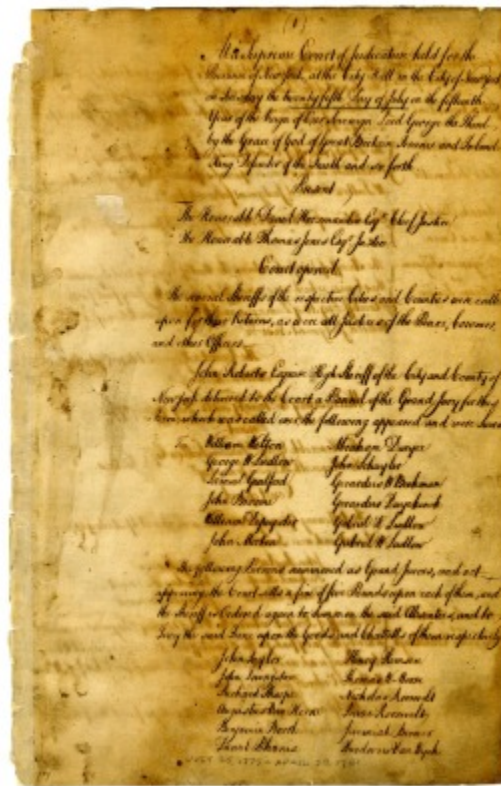 (1)
At a Supreme Court of Judicature held for the
Province of New York, at the City Hall in the City of New York
on Tuesday the twenty fifth Day of July in the fifteenth
Year of the Reign of our Sovereign Lord George the Third
by the Grace of God of Great Britain France and Ireland
King Defender of the Faith and so forth
Present
The Honorable Daniel Horsmanden Esqr. Chief Justice
The Honorable Thomas Jones Esqr. Justice
Court opened
The several Sheriffs of the respective Cities and Counties were
upon for their Returns, as were all Justices of the Peace, Coroners,
and other Officers
John Roberts Esquire High Sheriff of the City and County of
New York delivered to the Court a Pannel of the Grand Jury for this
Term which was called and the following appeared and were
William Walton Abraham
George D. Ludlow John Schuyler
Gerardus Beekman
John Gerardus Duyckinck
Gabriel Ludlow
John Gabriel Ludlow
The following Persons summoned as Grand Jurors, and not
appearing the Court sets a fine of five Pounds upon each of them, and
the Sheriff is Ordered again to Summon the said Absentees, and to
Levy the said Fine upon the Goods and Chattells of them respectively
John Taylor Henry Remsen
John Livingston Thomas
Richard Sharpe Nicholas Roosevelt
Augustus Van Horne Isaac Roosevelt
Benjamin Booth
Theodorus Van Wyck
JULY 25, 1775 - APRIL 28, 1781